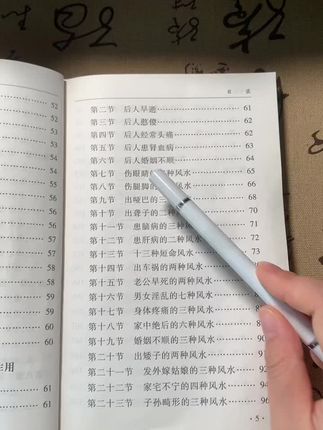 目 录
52
52
53
54
54
55
55
56
第二节 后人早逝 61
第三节 后人憨傻 62
第四节 后人经常头痛 62
第五节 后人患肾血病 63
第六节 后人婚姻不顺 64
第七节 伤眼睛的三种风水 65
第八节 伤腿脚的 种风水 66
第九节 出哑巴的三种风水 68
第十节 出聋子的二种风水 70
第十一节 患脑病的三种风水 71
第十二节 患肝病的三种风水 73
第十三节 十三种短命风水 74
第十四节 出车祸的两种风水
第十五节 老公早死的两种风水
第十六节 男女淫乱的七种风水
第十七节 身体疼痛的三种风水
第十八节 家中绝后的六种风水
第十九节 婚姻不顺的三种风水
第二十节 出矮子的两种风水
作用
第二十一节 发外嫁姑娘的三种风水
第二十二节 家宅不宁的四种风水
第二十三节 子孙畸形的三种风水 96
·5·